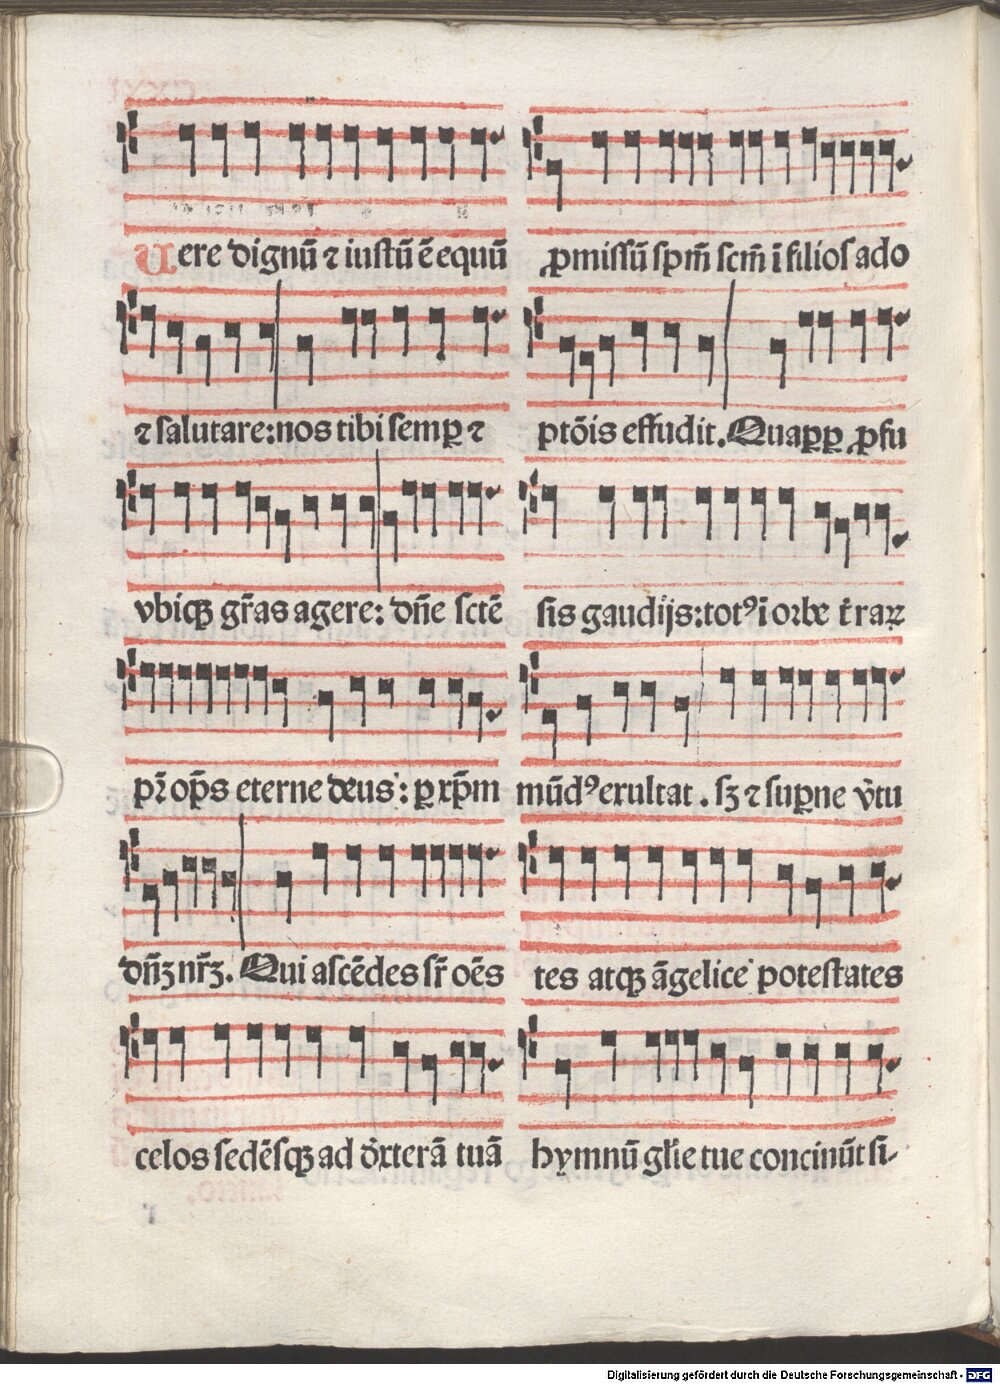 Uere dignū ⁊ iustū ē equū
⁊ salutare: nos tibi semꝑ ⁊
vbiqꝫ gr̄as agere: dn̄e sctē
pr̄ op̄s eterne deus: ꝑ xp̄m
dn̄ꝫ nr̄ꝫ. Qui ascēdes sr̄ oēs
celos sedēsqꝫ ad dexterā tuā
ꝓmissū spm̄ scm̄ ī filios ado
ptōis effudit. Quaꝓꝑ ꝓfu
sis gaudijs: totꝰ ī orbe tr̄aꝝ
mūdꝰ exultat. sꝫ ⁊ suꝑne v̓tu
tes atqꝫ āgelice potestates
hymnū gl̄ie tue concinūt si-
Digitalisierung gefördert durch die Deutsche Forschungsgemeinschaft - DFG